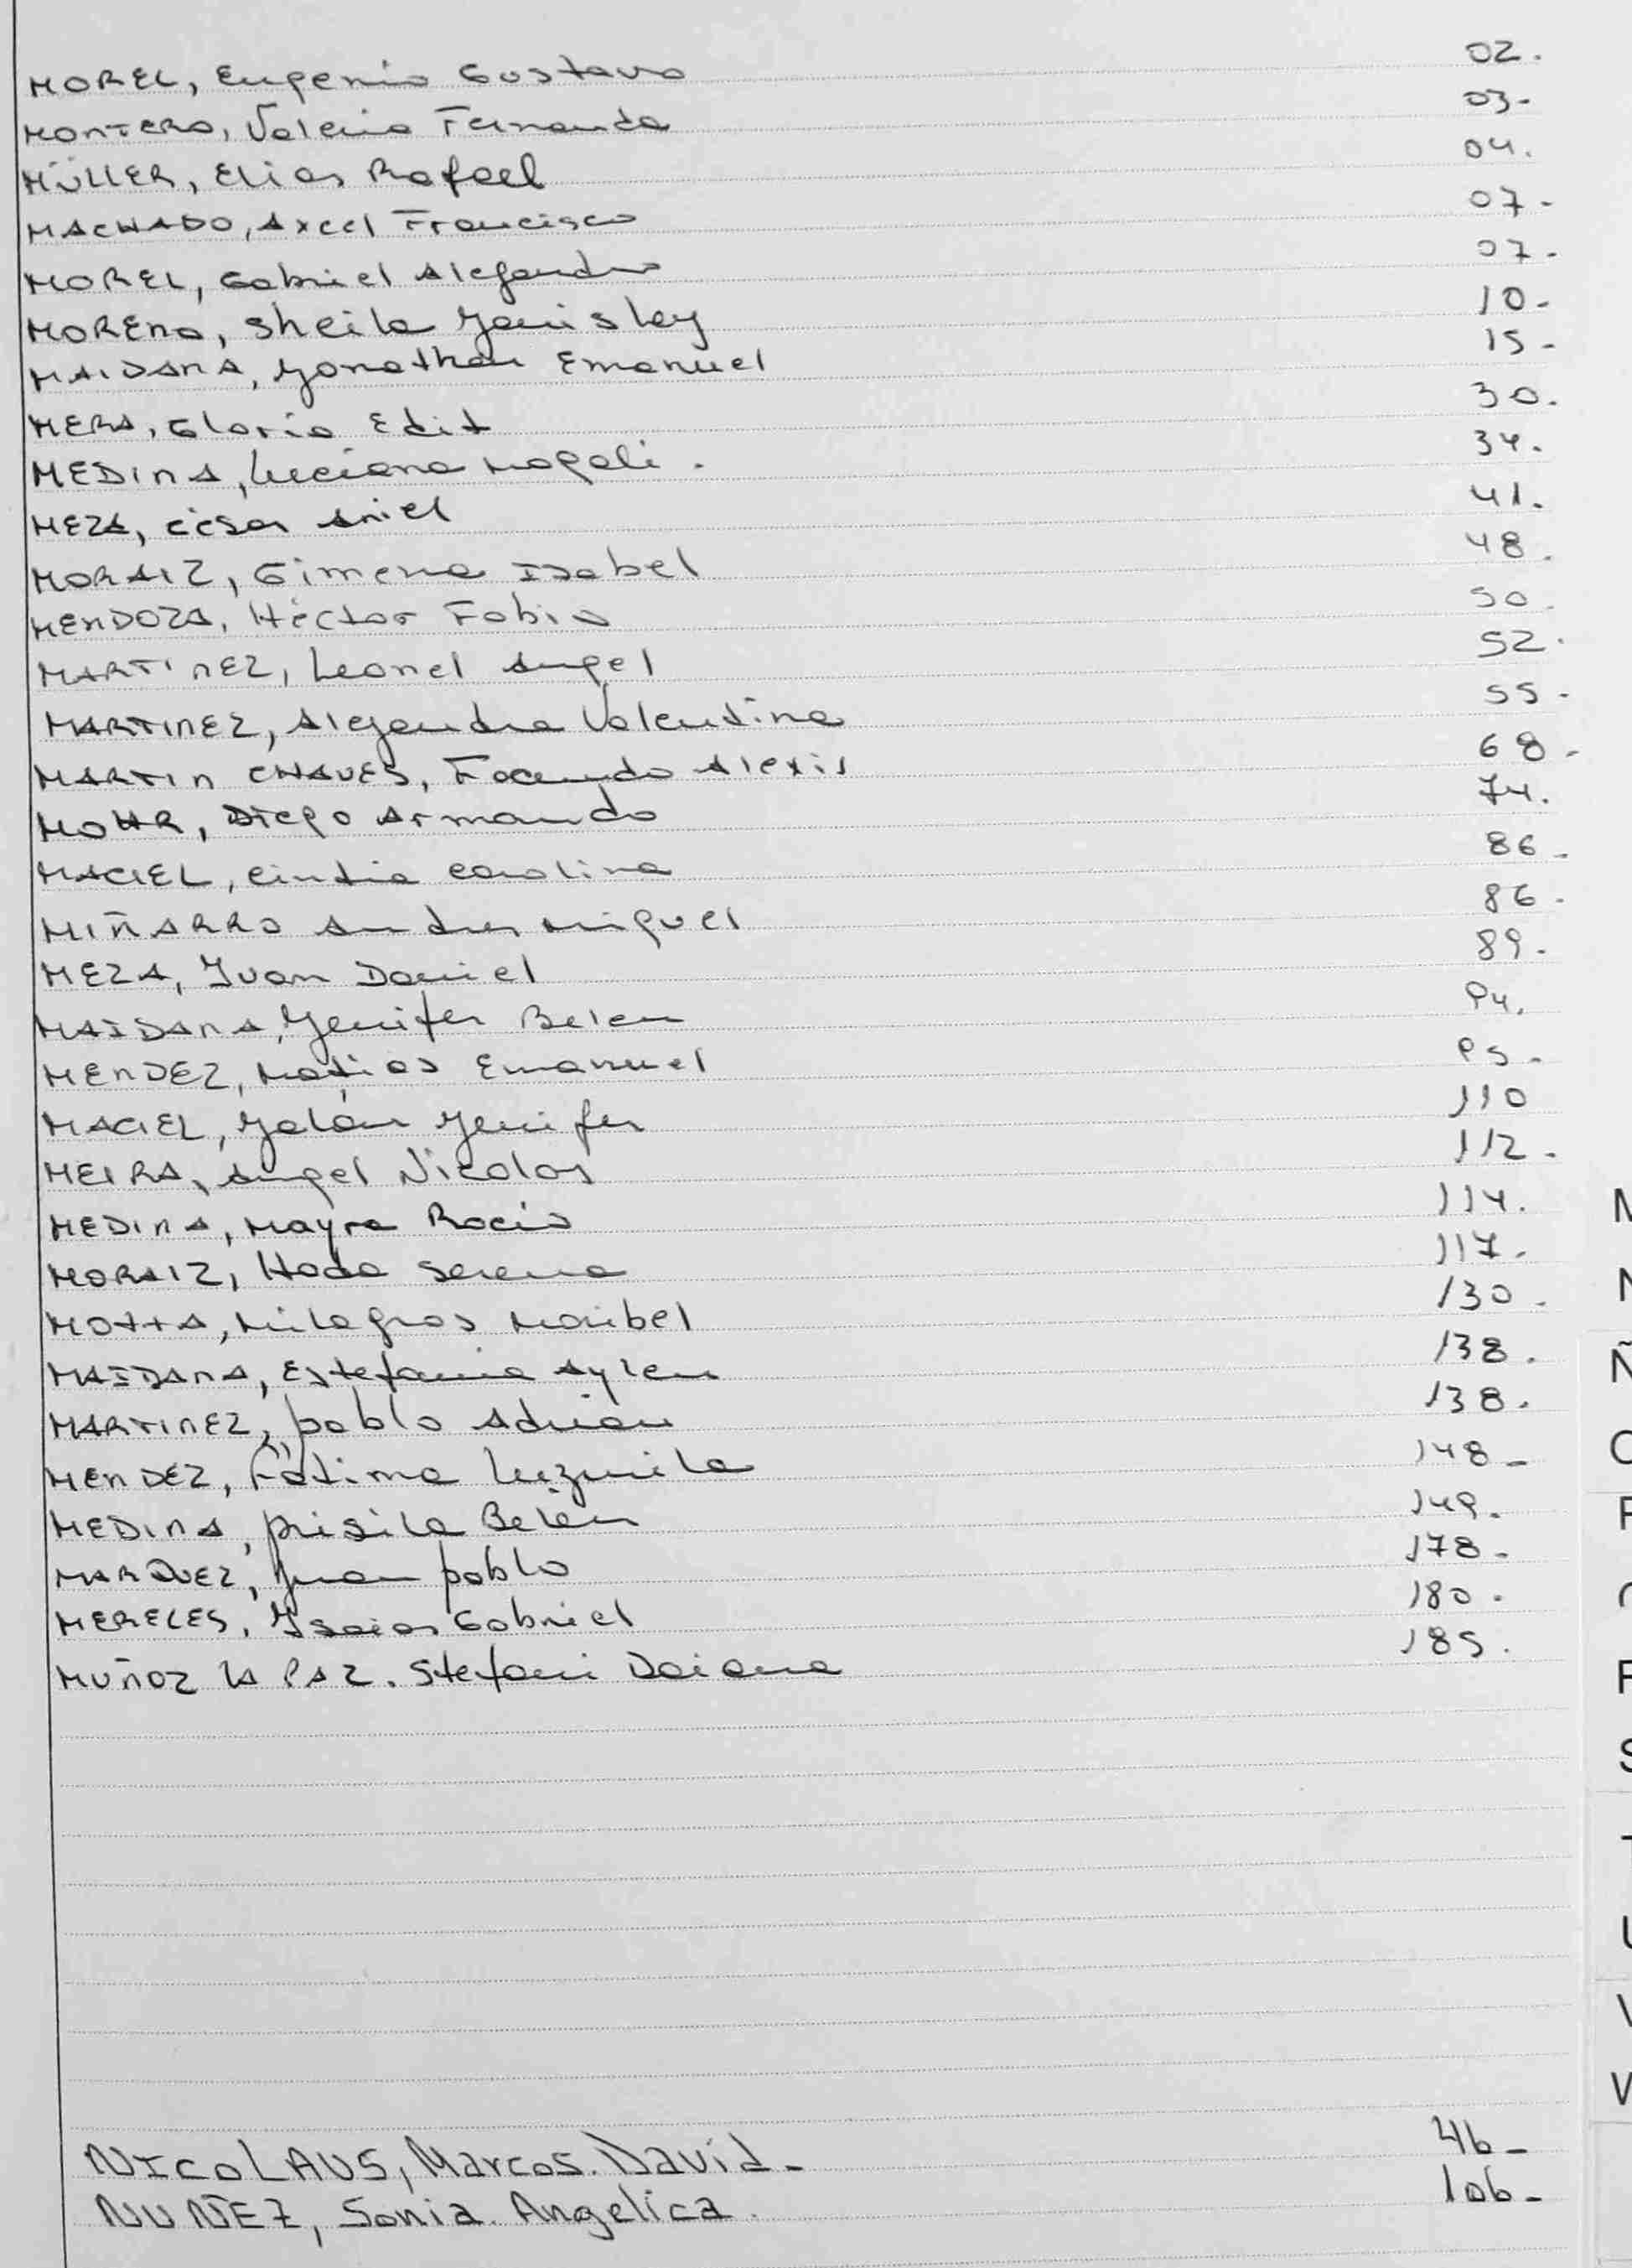 MOREL, Eugenio Gustavo 02.
MONTERO, Valeria Fernanda 03-
MÜLLER, Elias Rafael 04.
MACHADO, Axcel Francisco 07-
MOREL, Gabriel Alejandro 07-
MORENO, Sheila Yanisley 10-
MAIDANA, Yonathan Emanuel 15-
MERA, Gloria Edit 30.
MEDINA, Luciana Magali. 34.
MEZA, César Ariel 41.
MORAIZ, Gimena Isabel 48.
MENDOZA, Héctor Fabio 50.
MARTINEZ, Leonel Angel 52.
MARTINEZ, Alejandra Valentina 55-
MARTIN CHAVES, Facundo Alexis 68-
MOHR, Diego Armando 74.
MACIEL, Cintia Carolina 86-
MIÑARRO Andres Miguel 86-
MEZA, Juan Daniel 89-
MAIDANA, Yenifer Belen 94.
MENDEZ, Matias Emanuel 95-
MACIEL, Yalán Yenifer 110
MEIRA, Angel Nicolas 112-
MEDINA, Mayra Rocio 114.
MORAIZ, Hada Serena 117-
MOTTA, Milagros Maribel 130-
MAIDANA, Estefania Aylen 138.
MARTINEZ, Pablo Adrián 138.
MENDEZ, Fátima Luzmila 148-
MEDINA, Prisila Belén 149.
MARQUEZ, Juan Pablo 178-
MERELES, Isaias Gabriel 180-
MUÑOZ LA PAZ. Stefani Daiana 185.
NICOLAUS, Marcos. David- 46-
NUÑEZ, Sonia. Angelica. 106-
M
N
Ñ
O
P
Q
R
S
T
U
V
W